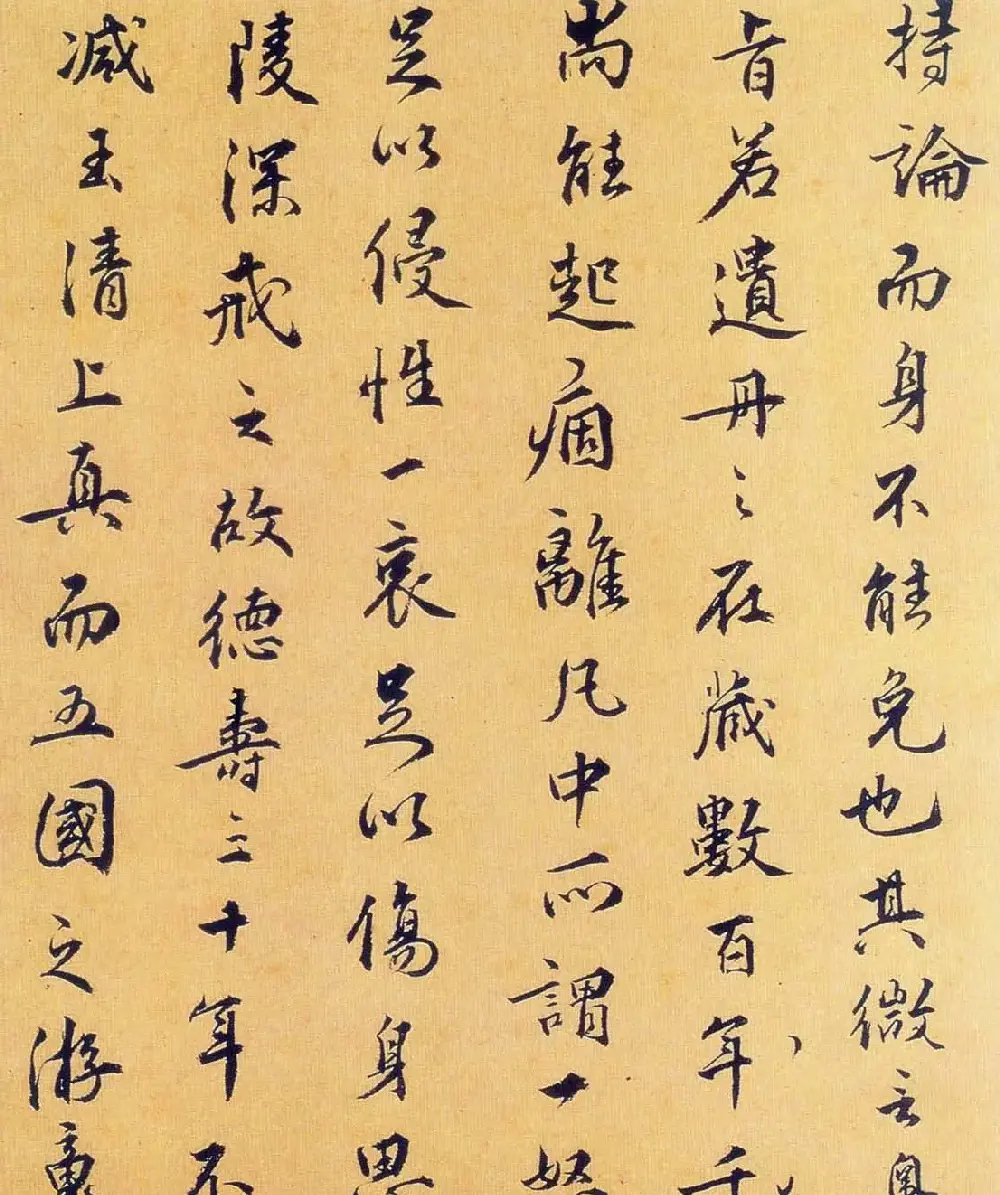 持論而身不能免也其微言奧
旨若遺丹之在藏數百年千
尚能起痼離凡中所謂一怒
足以侵性一哀足以傷身思
陵深戒之故德壽三十年不
减玉清上真而五國之游魂